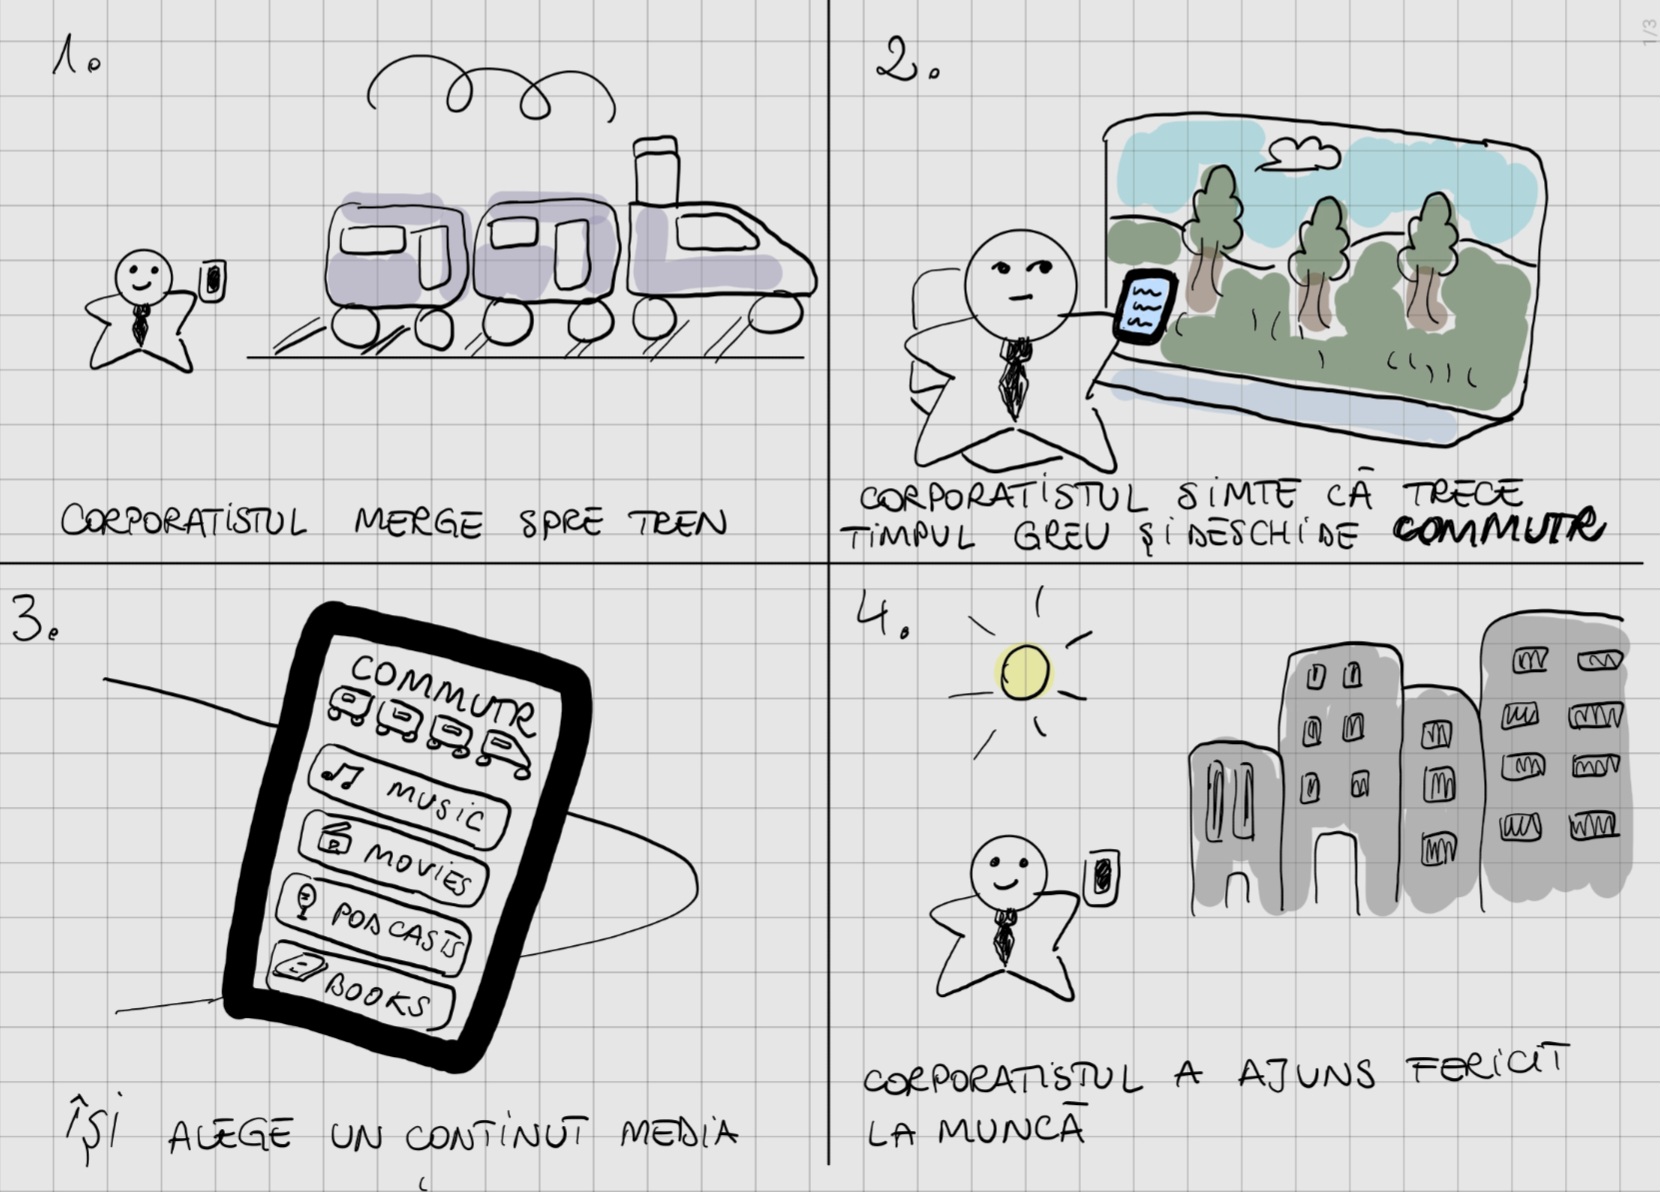 1/3
1.
CORPORATISTUL MERGE SPRE TREN
2.
CORPORATISTUL SIMTE CĂ TRECE
TIMPUL GREU ȘI DESCHIDE COMMUTR
3.
COMMUTR
MUSIC
MOVIES
PODCASTS
BOOKS
ÎȘI ALEGE UN CONȚINUT MEDIA
4.
CORPORATISTUL A AJUNS FERICIT
LA MUNCĂ